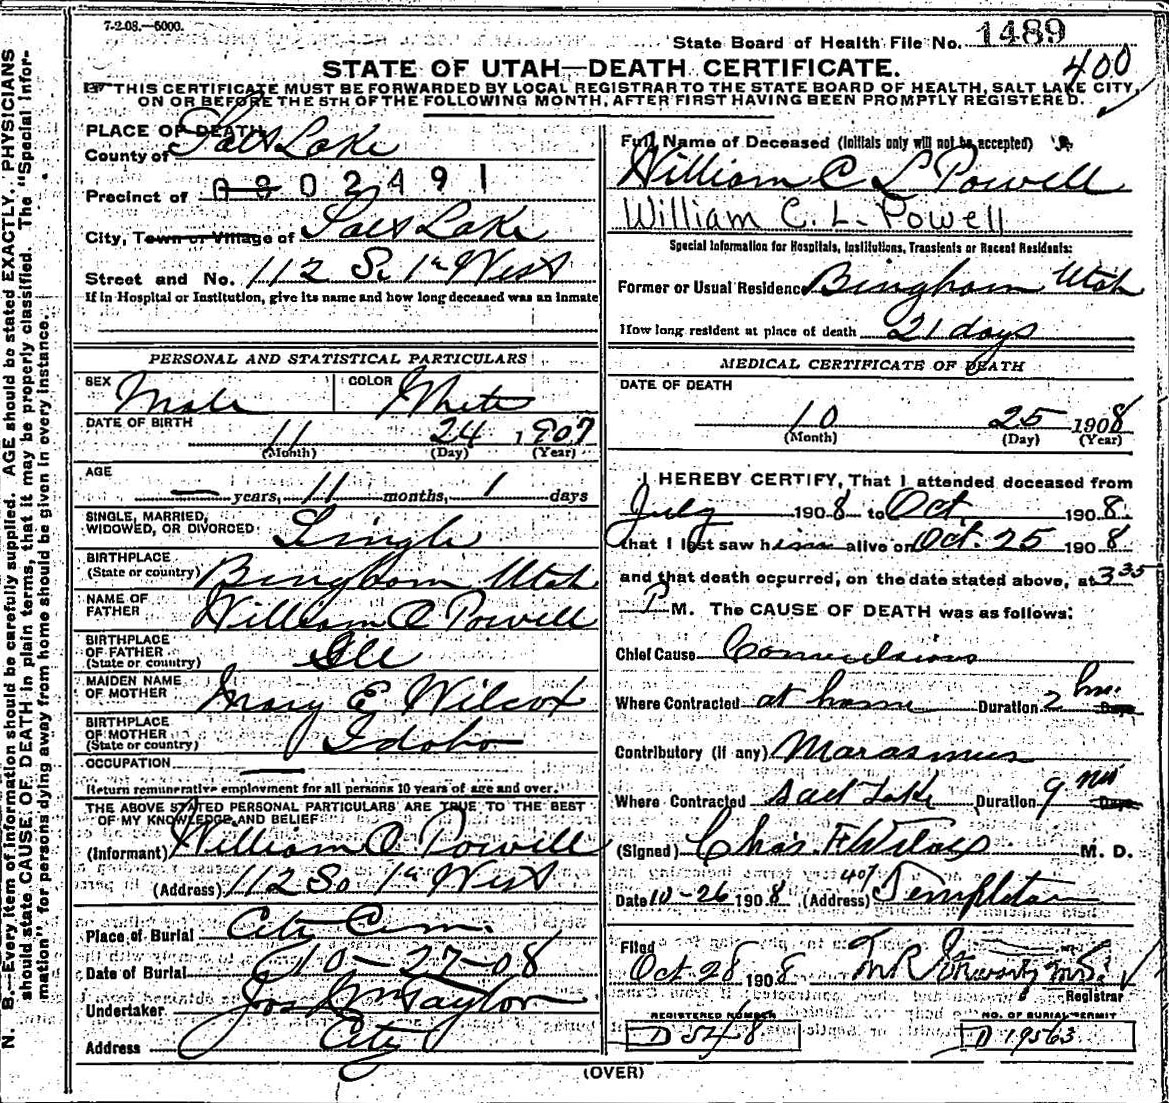 7-2-08.—5000.
State Board of Health File No. 1489
STATE OF UTAH—DEATH CERTIFICATE.
400
THIS CERTIFICATE MUST BE FORWARDED BY LOCAL REGISTRAR TO THE STATE BOARD OF HEALTH, SALT LAKE CITY,
ON OR BEFORE THE 5TH OF THE FOLLOWING MONTH, AFTER FIRST HAVING BEEN PROMPTLY REGISTERED.
PLACE OF DEATH
County of Salt Lake
Precinct of 0302491
City, Town or Village of Salt Lake
Street and No. 112 So 1st West
If in Hospital or Institution, give its name and how long deceased was an inmate
PERSONAL AND STATISTICAL PARTICULARS
SEX Male COLOR White
DATE OF BIRTH 11 24 1907
(Month) (Day) (Year)
AGE — years, 11 months, 1 days
SINGLE, MARRIED, WIDOWED, OR DIVORCED Single
BIRTHPLACE (State or country) Bingham Utah
NAME OF FATHER William C Powell
BIRTHPLACE OF FATHER (State or country) Ill
MAIDEN NAME OF MOTHER Mary E Wilcox
BIRTHPLACE OF MOTHER (State or country) Idaho
OCCUPATION —
Return remunerative employment for all persons 10 years of age and over.
THE ABOVE STATED PERSONAL PARTICULARS ARE TRUE TO THE BEST
OF MY KNOWLEDGE AND BELIEF
(Informant) William C Powell
(Address) 112 So 1st West
Place of Burial City Cem.
Date of Burial 10-27-08
Undertaker Jos Wm Taylor
Address City
Full Name of Deceased (Initials only will not be accepted)
William C L Powell
William C. L. Powell
Special Information for Hospitals, Institutions, Transients or Recent Residents:
Former or Usual Residence Bingham Utah
How long resident at place of death 21 days
MEDICAL CERTIFICATE OF DEATH
DATE OF DEATH
10 25 1908
(Month) (Day) (Year)
I HEREBY CERTIFY, That I attended deceased from
July 1908 to Oct 1908
that I last saw him alive on Oct. 25 1908
and that death occurred, on the date stated above, at 3 35
P M. The CAUSE OF DEATH was as follows:
Chief Cause Convulsions
Where Contracted at home Duration 2 hrs. Days
Contributory (if any) Marasmus
Where Contracted Salt Lake Duration 9 Days
(Signed) Chas. F. Wilcox M. D.
Date 10-26 1908 (Address) 407 Templeton
Filed
Oct 28 1908
Registrar
REGISTERED NUMBER
D 548
NO. OF BURIAL PERMIT
D 19563
(OVER)
N. B.—Every item of information should be carefully supplied. AGE should be stated EXACTLY. PHYSICIANS
should state CAUSE OF DEATH in plain terms, that it may be properly classified. The "Special Infor-
mation" for persons dying away from home should be given in every instance.